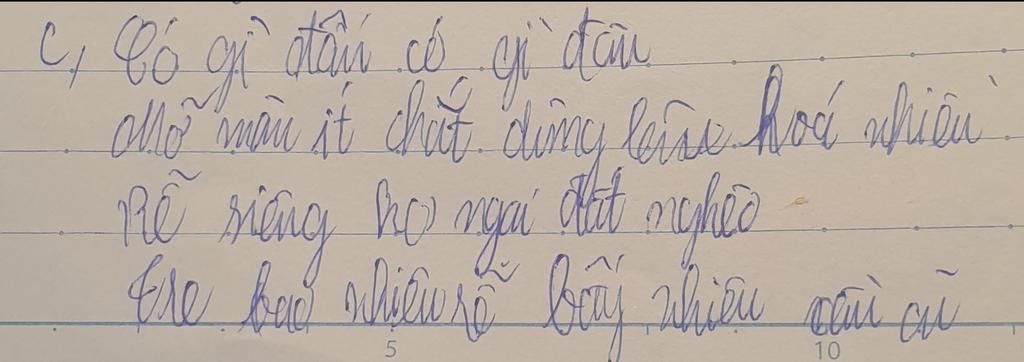 c, Có gì đâu có gì đâu
Mỡ màu ít chắt dồng lâu hoá nhiều
Rễ siêng ko ngại đất nghèo
tre bao nhiêu rễ bấy nhiêu cần cù